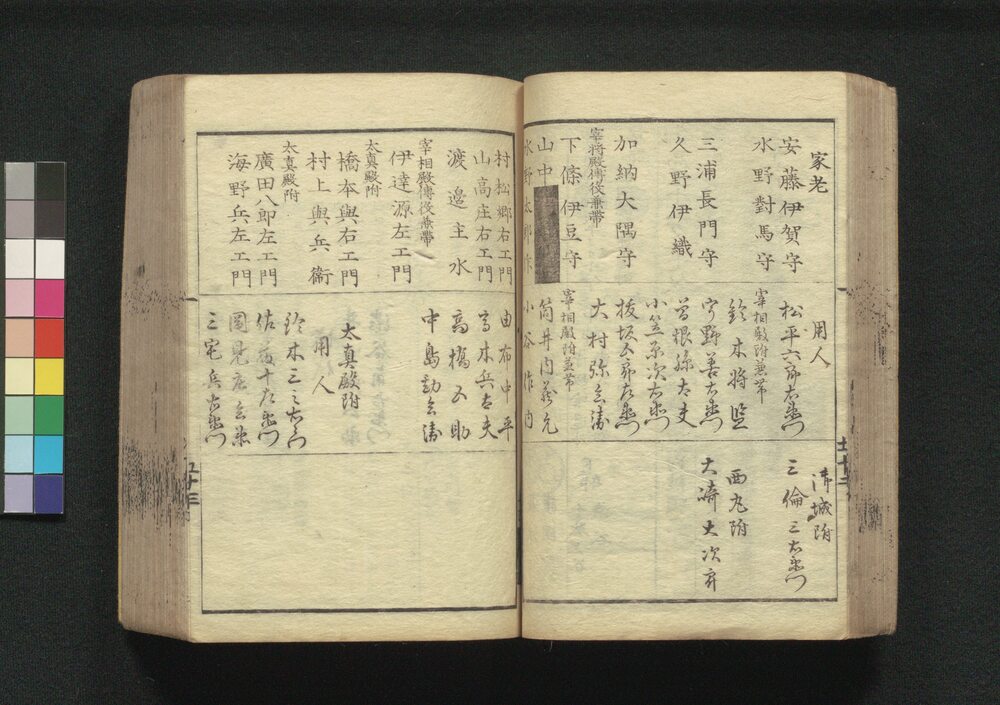 家老
安藤伊賀守
水野對馬守
三浦長門守
久野伊織
加納大隅守
宰将殿傅役兼帯
下條伊豆守
山中
水野太郎
用人
松平六郎右衛門
宰相殿附兼帯
鈴木将監
宇野善右衛門
曽根孫太夫
小笠原次右衛門
大村弥兵衛
宰相殿附兼帯
筒井内蔵允
小谷作内
御城附
三倫三右衛門
西丸附
大崎
村松郷右エ門
山高庄右エ門
渡邉主水
宰相殿傅役兼帯
伊達源左エ門
太真殿附
橋本與右エ門
村上與兵衞
太真殿附
廣田八郎左エ門
海野兵左エ門
由布中平
高木兵太夫
高橋五助
中島勘兵衛
太真殿附
用人
鈴木三右衛門
佐藤十左衛門
三宅兵右衛門
五十三